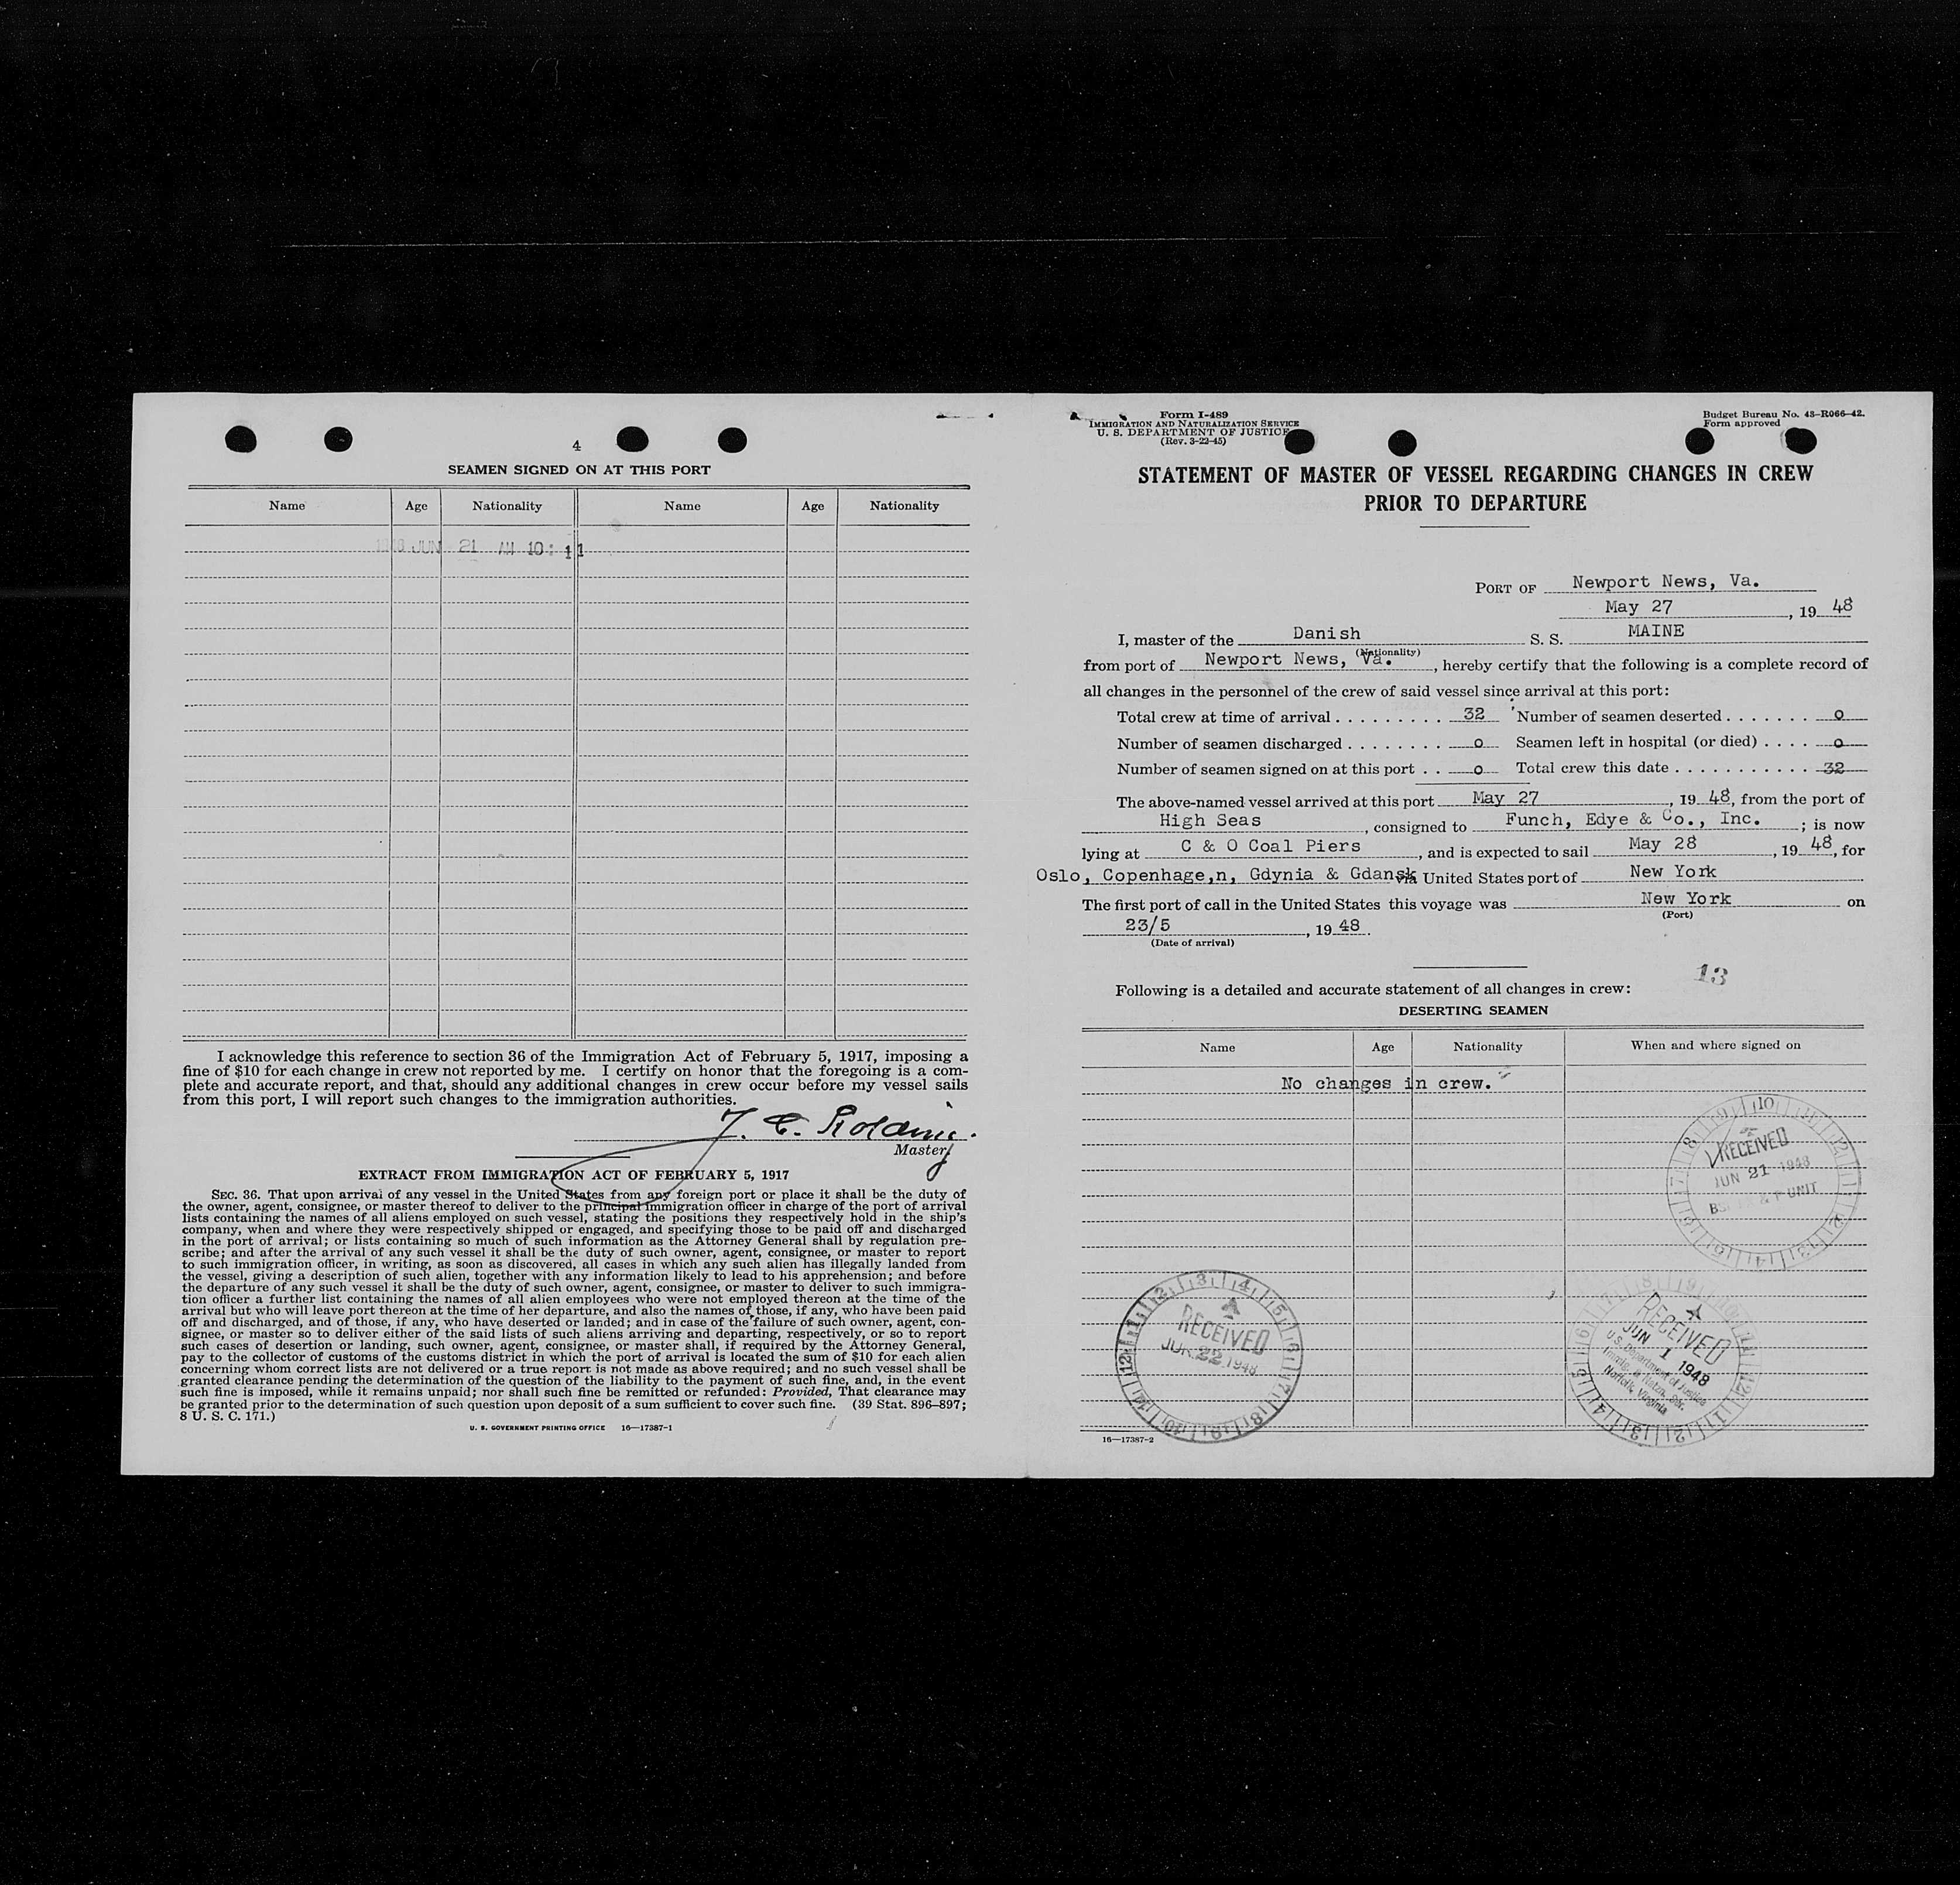 4
SEAMEN SIGNED ON AT THIS PORT
Name Age Nationality Name Age Nationality
JUN 21 AM 10: 11
I acknowledge this reference to section 36 of the Immigration Act of February 5, 1917, imposing a
fine of $10 for each change in crew not reported by me. I certify on honor that the foregoing is a com-
plete and accurate report, and that, should any additional changes in crew occur before my vessel sails
from this port, I will report such changes to the immigration authorities.
Master
EXTRACT FROM IMMIGRATION ACT OF FEBRUARY 5, 1917
SEC. 36. That upon arrival of any vessel in the United States from any foreign port or place it shall be the duty of
the owner, agent, consignee, or master thereof to deliver to the principal immigration officer in charge of the port of arrival
lists containing the names of all aliens employed on such vessel, stating the positions they respectively hold in the ship's
company, when and where they were respectively shipped or engaged, and specifying those to be paid off and discharged
in the port of arrival; or lists containing so much of such information as the Attorney General shall by regulation pre-
scribe; and after the arrival of any such vessel it shall be the duty of such owner, agent, consignee, or master to report
to such immigration officer, in writing, as soon as discovered, all cases in which any such alien has illegally landed from
the vessel, giving a description of such alien, together with any information likely to lead to his apprehension; and before
the departure of any such vessel it shall be the duty of such owner, agent, consignee, or master to deliver to such immigra-
tion officer a further list containing the names of all alien employees who were not employed thereon at the time of the
arrival but who will leave port thereon at the time of her departure, and also the names of those, if any, who have been paid
off and discharged, and of those, if any, who have deserted or landed; and in case of the failure of such owner, agent, con-
signee, or master so to deliver either of the said lists of such aliens arriving and departing, respectively, or so to report
such cases of desertion or landing, such owner, agent, consignee, or master shall, if required by the Attorney General,
pay to the collector of customs of the customs district in which the port of arrival is located the sum of $10 for each alien
concerning whom correct lists are not delivered or a true report is not made as above required; and no such vessel shall be
granted clearance pending the determination of the question of the liability to the payment of such fine, and, in the event
such fine is imposed, while it remains unpaid; nor shall such fine be remitted or refunded: Provided, That clearance may
be granted prior to the determination of such question upon deposit of a sum sufficient to cover such fine. (39 Stat. 896–897;
8 U. S. C. 171.)
U. S. GOVERNMENT PRINTING OFFICE 16—17387-1
Form I-489
IMMIGRATION AND NATURALIZATION SERVICE
U. S. DEPARTMENT OF JUSTICE
(Rev. 3-22-45)
Budget Bureau No. 43-R066-42.
Form approved
STATEMENT OF MASTER OF VESSEL REGARDING CHANGES IN CREW
PRIOR TO DEPARTURE
PORT OF Newport News, Va.
May 27, 19 48
I, master of the Danish S. S. MAINE
(Nationality)
from port of Newport News, Va., hereby certify that the following is a complete record of
all changes in the personnel of the crew of said vessel since arrival at this port:
Total crew at time of arrival . . . . . . . . . 32 Number of seamen deserted . . . . . . . 0
Number of seamen discharged . . . . . . . . 0 Seamen left in hospital (or died) . . . . 0
Number of seamen signed on at this port . . 0 Total crew this date . . . . . . . . . . . 32
The above-named vessel arrived at this port May 27, 19 48, from the port of
High Seas, consigned to Funch, Edye & Co., Inc.; is now
lying at C & O Coal Piers, and is expected to sail May 28, 19 48, for
Oslo, Copenhage,n, Gdynia & Gdansk via United States port of New York
The first port of call in the United States this voyage was New York on
(Port)
23/5, 19 48.
(Date of arrival)
13
Following is a detailed and accurate statement of all changes in crew:
DESERTING SEAMEN
Name Age Nationality When and where signed on
No changes in crew.
RECEIVED
JUN 21 1948
UNIT
RECEIVED
JUN 22 1948
RECEIVED
JUN 1 1948
U.S. Department of Justice
Immig. & Natzn. Ser.
Norfolk, Virginia
16—17387-2